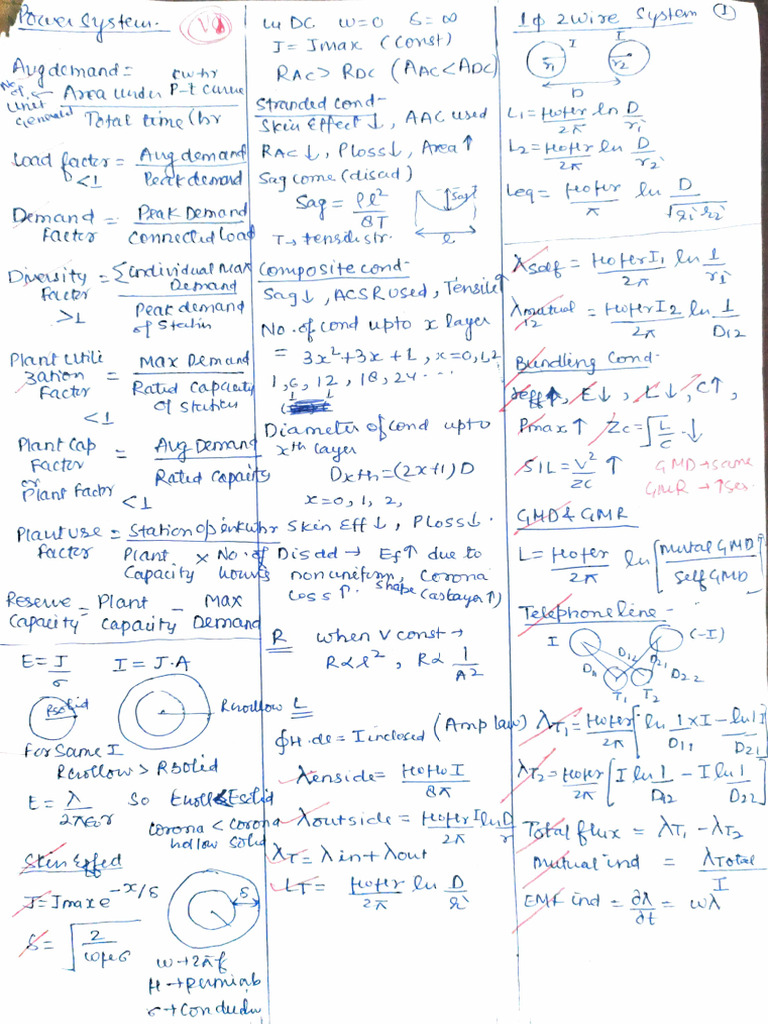 Power System.
Avg demand = Area under P-t curve
kwhr
No. of unit generated
Total time (hr
Load factor = Avg demand
<1
Peak demand
Demand Factor = Peak Demand
Connected Load
Diversity Factor = Σ individual Max Demand
>1
Peak demand of Station
Plant Utilization Factor = Max Demand
<1
Rated Capacity of Station
Plant Cap Factor = Avg Demand
or
Plant factor
<1
Rated Capacity
Plant use Factor = Station op in kwhr
Plant Capacity × No. of hours
Reserve Capacity = Plant Capacity - Max Demand
E = J/σ I = J.A
Rsolid
Rhollow
For Same I
Rhollow > Rsolid
E = λ/2πε₀r So Ehollow < Esolid
corona hollow < corona solid
Skin Effect
J = Jmax e^-x/δ
δ
δ = √(2/ωμσ)
ω → 2πf
μ → Permiab
σ → Conductiv
in DC ω=0 δ=∞
J = Jmax (Const)
RAC > RDC (AAC < ADC)
Stranded cond-
Skin Effect ↓, AAC used
RAC ↓, Ploss ↓, Area ↑
Sag come (disad)
Sag = ρl²/8T
Sag
l
T → tensile str.
Composite cond-
Sag ↓, ACSR used, Tensile ↑
No. of cond upto x layer
= 3x²+3x+1, x=0,1,2
1, 6, 12, 18, 24 ...
Diameter of cond upto
xth layer
Dxth = (2x+1) D
x=0, 1, 2,
Skin Eff ↓, Ploss ↓.
Disad → Ef ↑ due to
nonuniform shape, corona
loss ↑. (as layer ↑)
R when V const →
R ∝ l², R ∝ 1/A²
L
∮H.dl = I inclosed (Amp law)
λinside = μ₀μ₀I/8π
λoutside = μ₀μrI ln D/r
λT = λin + λout
LT = μ₀μr/2π ln D/r'
1φ 2 wire System
1
I I
r₁ r₂
D
L₁ = μ₀μr/2π ln D/r₁'
L₂ = μ₀μr/2π ln D/r₂'
Leq = μ₀μr/π ln D/√r₁'r₂'
λself = μ₀μrI₁/2π ln 1/r₁'
λmutual 12 = μ₀μrI₂/2π ln 1/D12
Bundling Cond-
reff ↑, E ↓, L ↓, C ↑,
Pmax ↑ Zc = √L/C ↓
SIL = V²/Zc ↑ GMD → same
GMR → ↑ses.
GMD & GMR
L = μ₀μr/2π ln [Mutal GMD ↑/Self GMD]
Telephone line-
I (-I)
D11 D12 D21 D22
T₁ T₂
λT₁ = μ₀μr/2π [ln 1/D11 × I - ln 1/D21 I]
λT₂ = μ₀μr/2π [I ln 1/D12 - I ln 1/D22]
Total flux = λT₁ - λT₂
Mutual ind = λTotal/I
EMF ind = ∂λ/∂t = ωλ